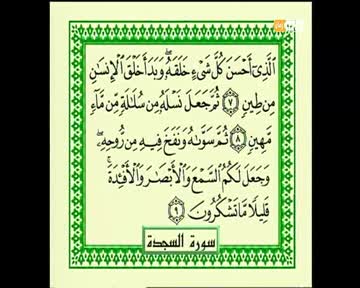 ٱلَّذِىٓ أَحْسَنَ كُلَّ شَىْءٍ خَلَقَهُۥ ۖ وَبَدَأَ خَلْقَ ٱلْإِنسَٰنِ
مِن طِينٍ ٧ ثُمَّ جَعَلَ نَسْلَهُۥ مِن سُلَٰلَةٍ مِّن مَّآءٍ
مَّهِينٍ ٨ ثُمَّ سَوَّىٰهُ وَنَفَخَ فِيهِ مِن رُّوحِهِۦ ۖ
وَجَعَلَ لَكُمُ ٱلسَّمْعَ وَٱلْأَبْصَٰرَ وَٱلْأَفْـِٔدَةَ ۚ
قَلِيلًا مَّا تَشْكُرُونَ ٩
سورة السجدة